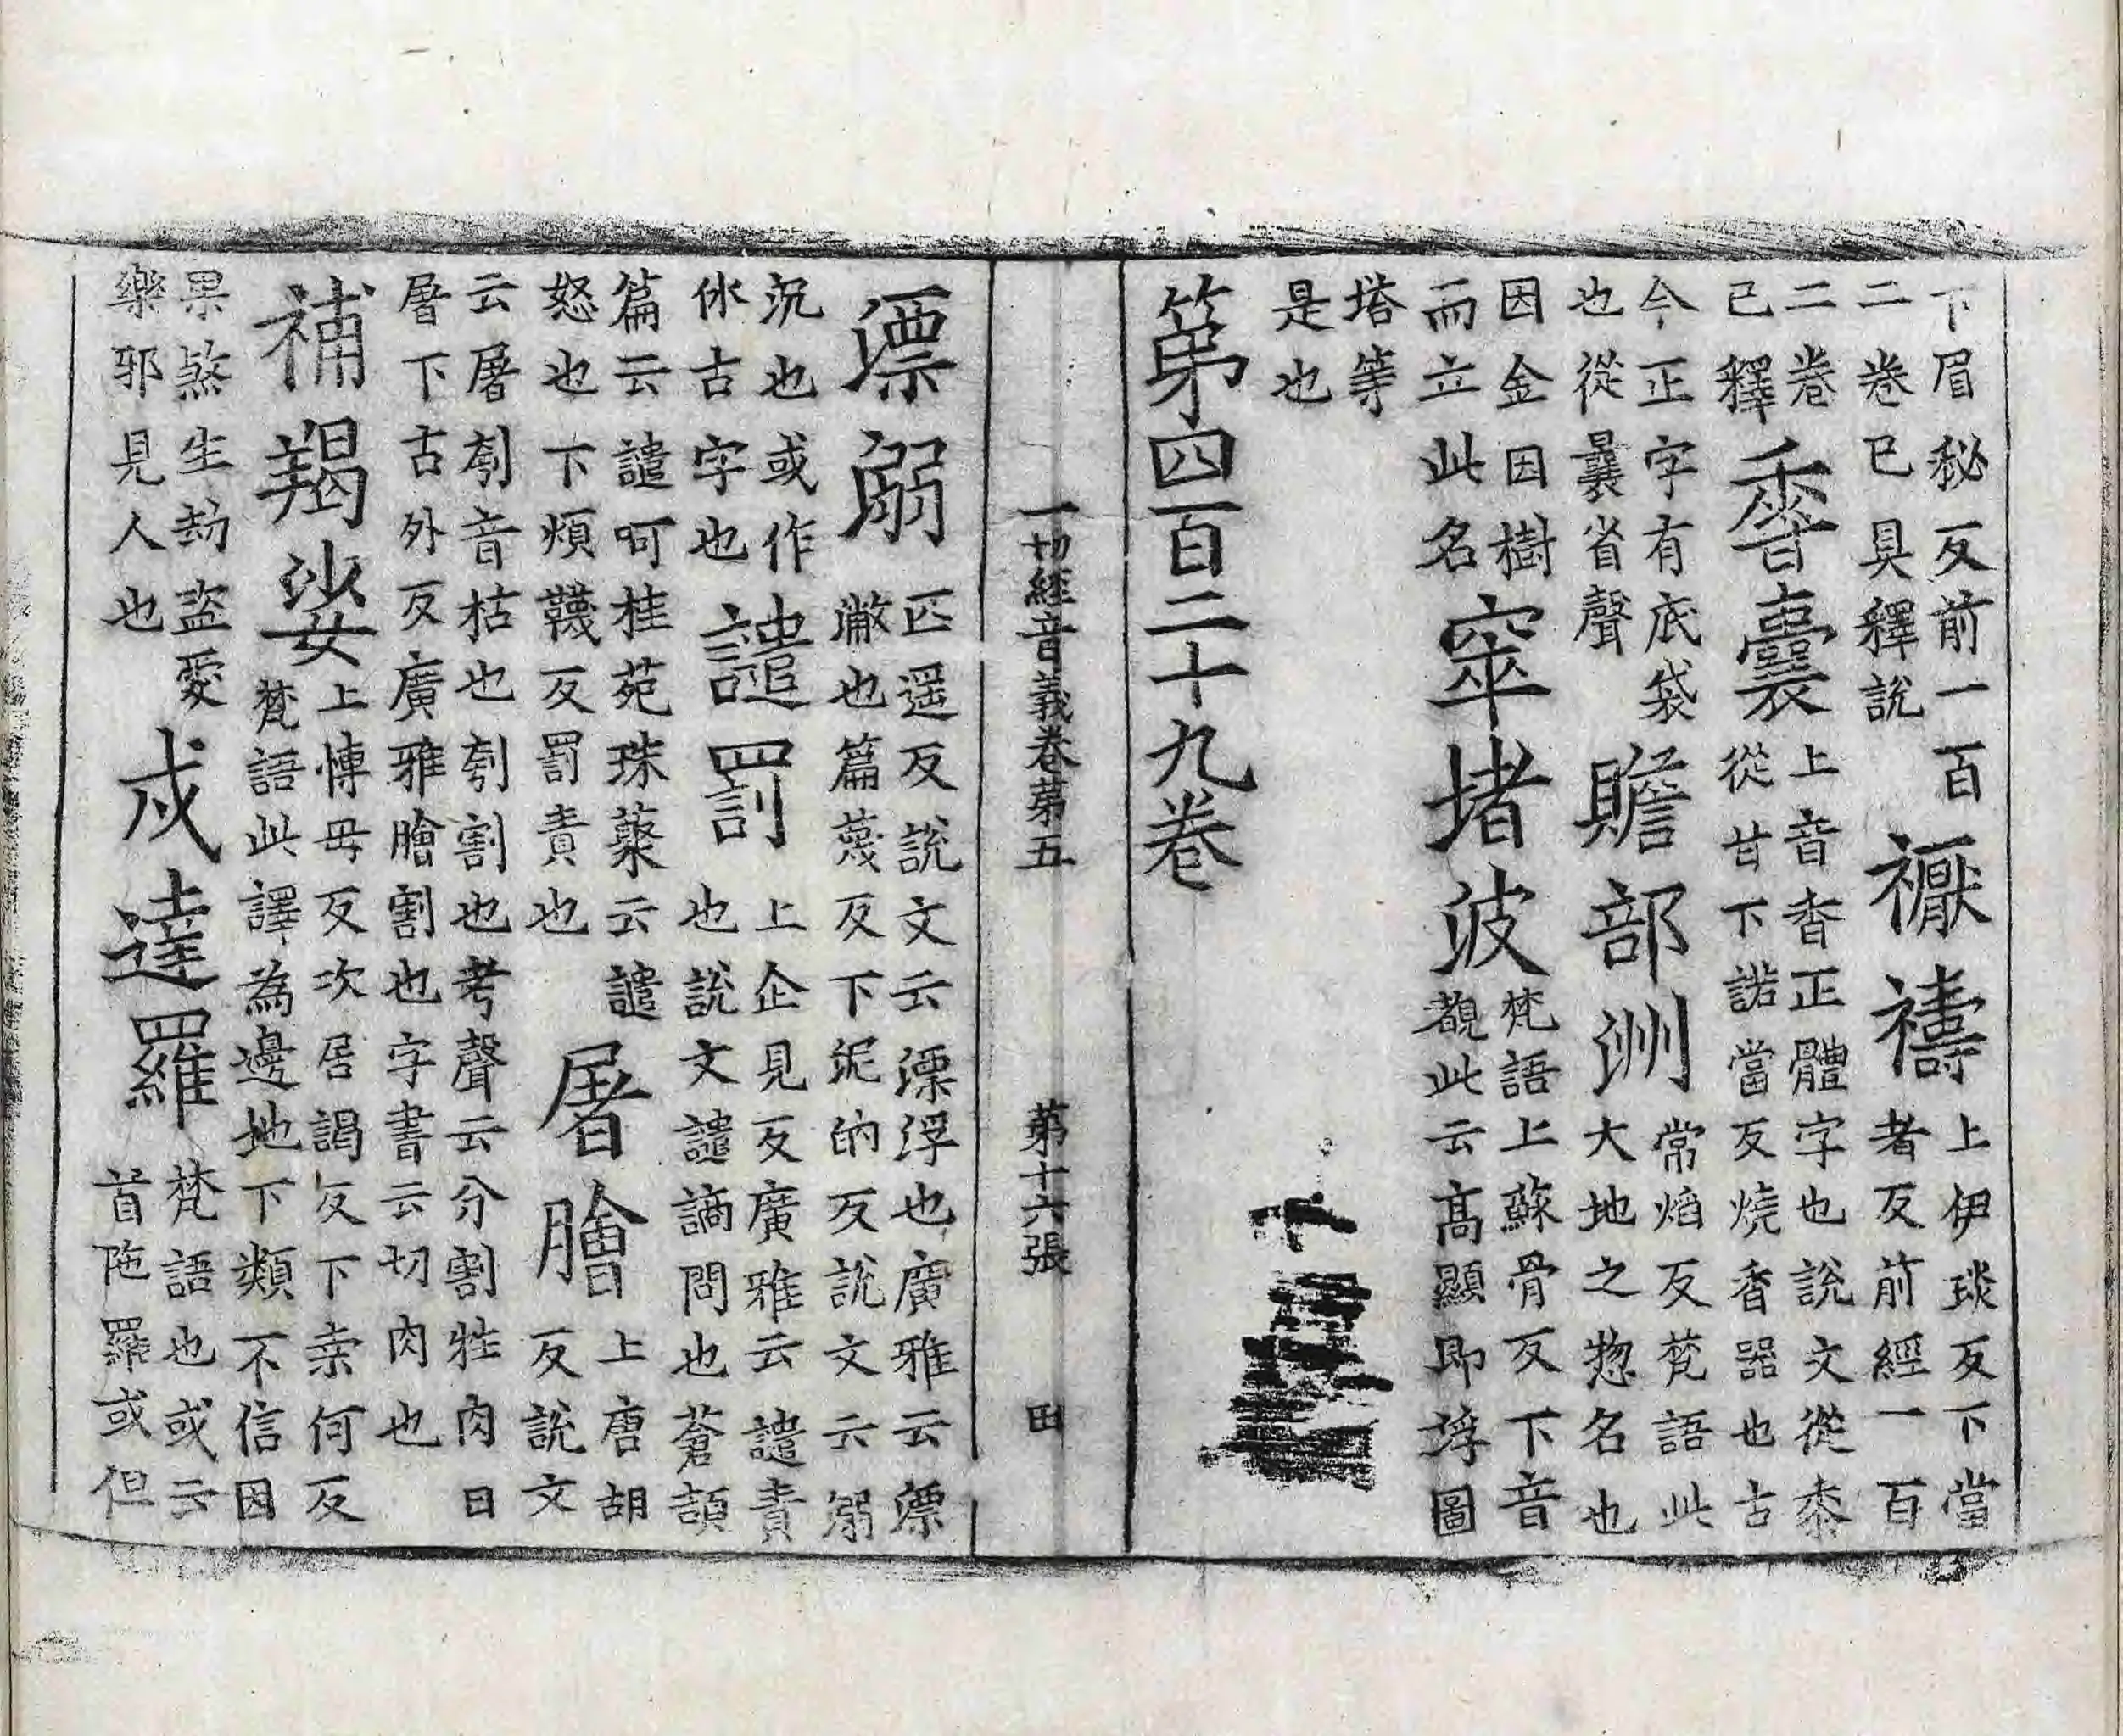 下眉秘反前一百
二卷已具釋說
禱
上伊琰反下當
者反前經一百
二卷
已釋
香囊
上音香正體字也說文從黍
從甘下諾當反燒香器也古
今正字有底袋
也從曩省聲
贍部洲
常焰反梵語此
大地之惣名也
因金因樹
而立此名
窣堵波
梵語上蘇骨反下音
覩此云高顯即浮圖
塔等
是也
第四百二十九卷
一切經音義卷第五 第十六張 田
漂溺
匹遥反說文云漂浮也廣雅云漂
潎也篇蔑反下泥的反說文云溺
沉也或作
㲻古字也
譴罰
上企見反廣雅云譴責
也說文譴謫問也蒼頡
篇云譴呵桂苑珠藂云譴
怒也下煩韈反罰責也
屠膾
上唐胡
反說文
云屠刳音枯也刳割也考聲云分割牲肉曰
屠下古外反廣雅膾割也字書云切肉也
補羯娑
上愽毋反次居謁反下桒何反
梵語此譯為邊地下類不信因
果煞生劫盜愛
樂邪見人也
戍達羅
梵語也或云
首陁羅或但